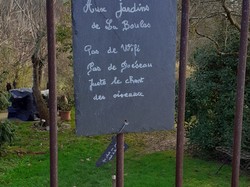 Aux Jardins
de La Boulas
Pas de Wifi
Pas de Réseau
Juste le chant
des oiseaux